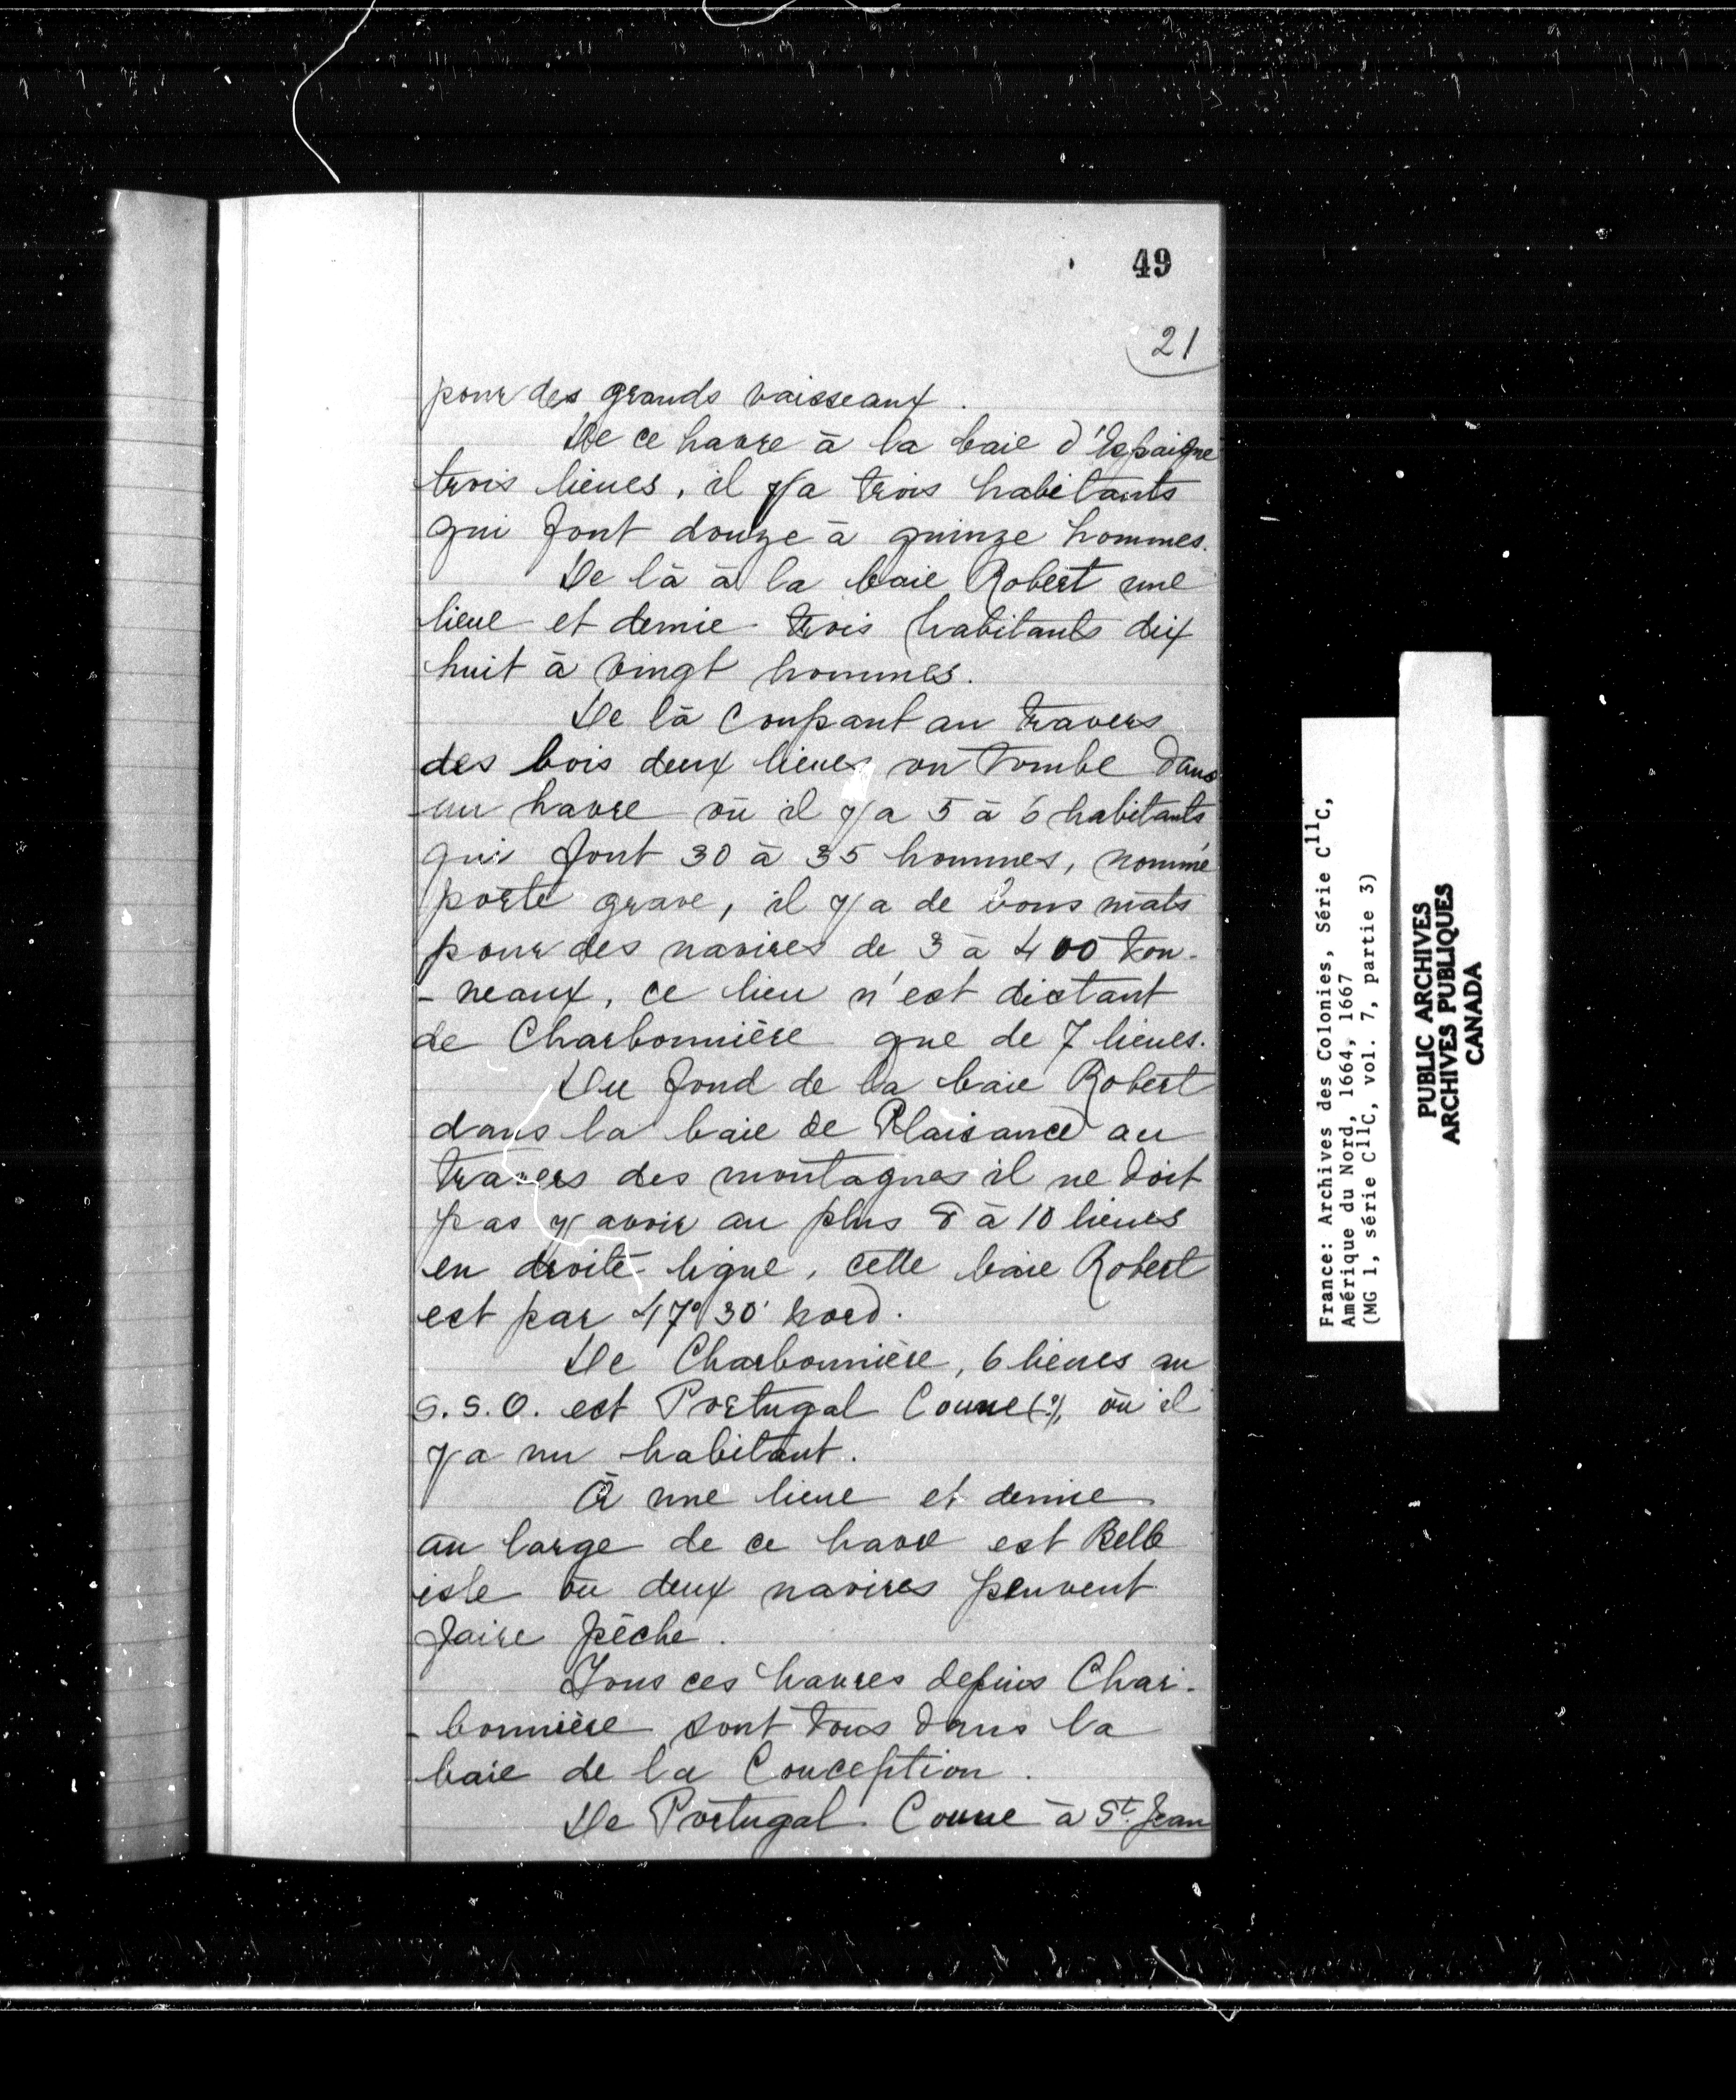 49
21
pour des grands vaisseaux.
De ce havre à la baie d'Espaigne
trois lieues, il y a trois habitants
qui font douze à quinze hommes.
De là à la baie Robert une
lieue et demie trois habitants dix
huit à vingt hommes.
De là coupant au travers
des bois deux lieues on tombe dans
un havre où il y a 5 à 6 habitants
qui font 30 à 35 hommes, nommé
porte grave, il y a de bons mats
pour des navires de 3 à 400 ton-
-neaux, ce lieu n'est distant
de Charbonnière que de 7 lieues.
Du fond de la baie Robert
dans la baie de Plaisance au
travers des montagnes il ne doit
pas y avoir au plus 8 à 10 lieues
en droite ligne, cette baie Robert
est par 47° 30' nord.
De Charbonnière, 6 lieues au
S.S.O. est Portugal Coune (?), où il
y a un habitant.
À une lieue et demie
au large de ce havre est Belle
isle où deux navires peuvent
faire pêche.
Tous ces havres depuis Char-
-bonnière sont tous dans la
baie de la Conception.
De Portugal Coune à St. Jean
France: Archives des Colonies, Série C11C,
Amérique du Nord, 1664, 1667
(MG 1, série C11C, vol. 7, partie 3)
PUBLIC ARCHIVES
ARCHIVES PUBLIQUES
CANADA